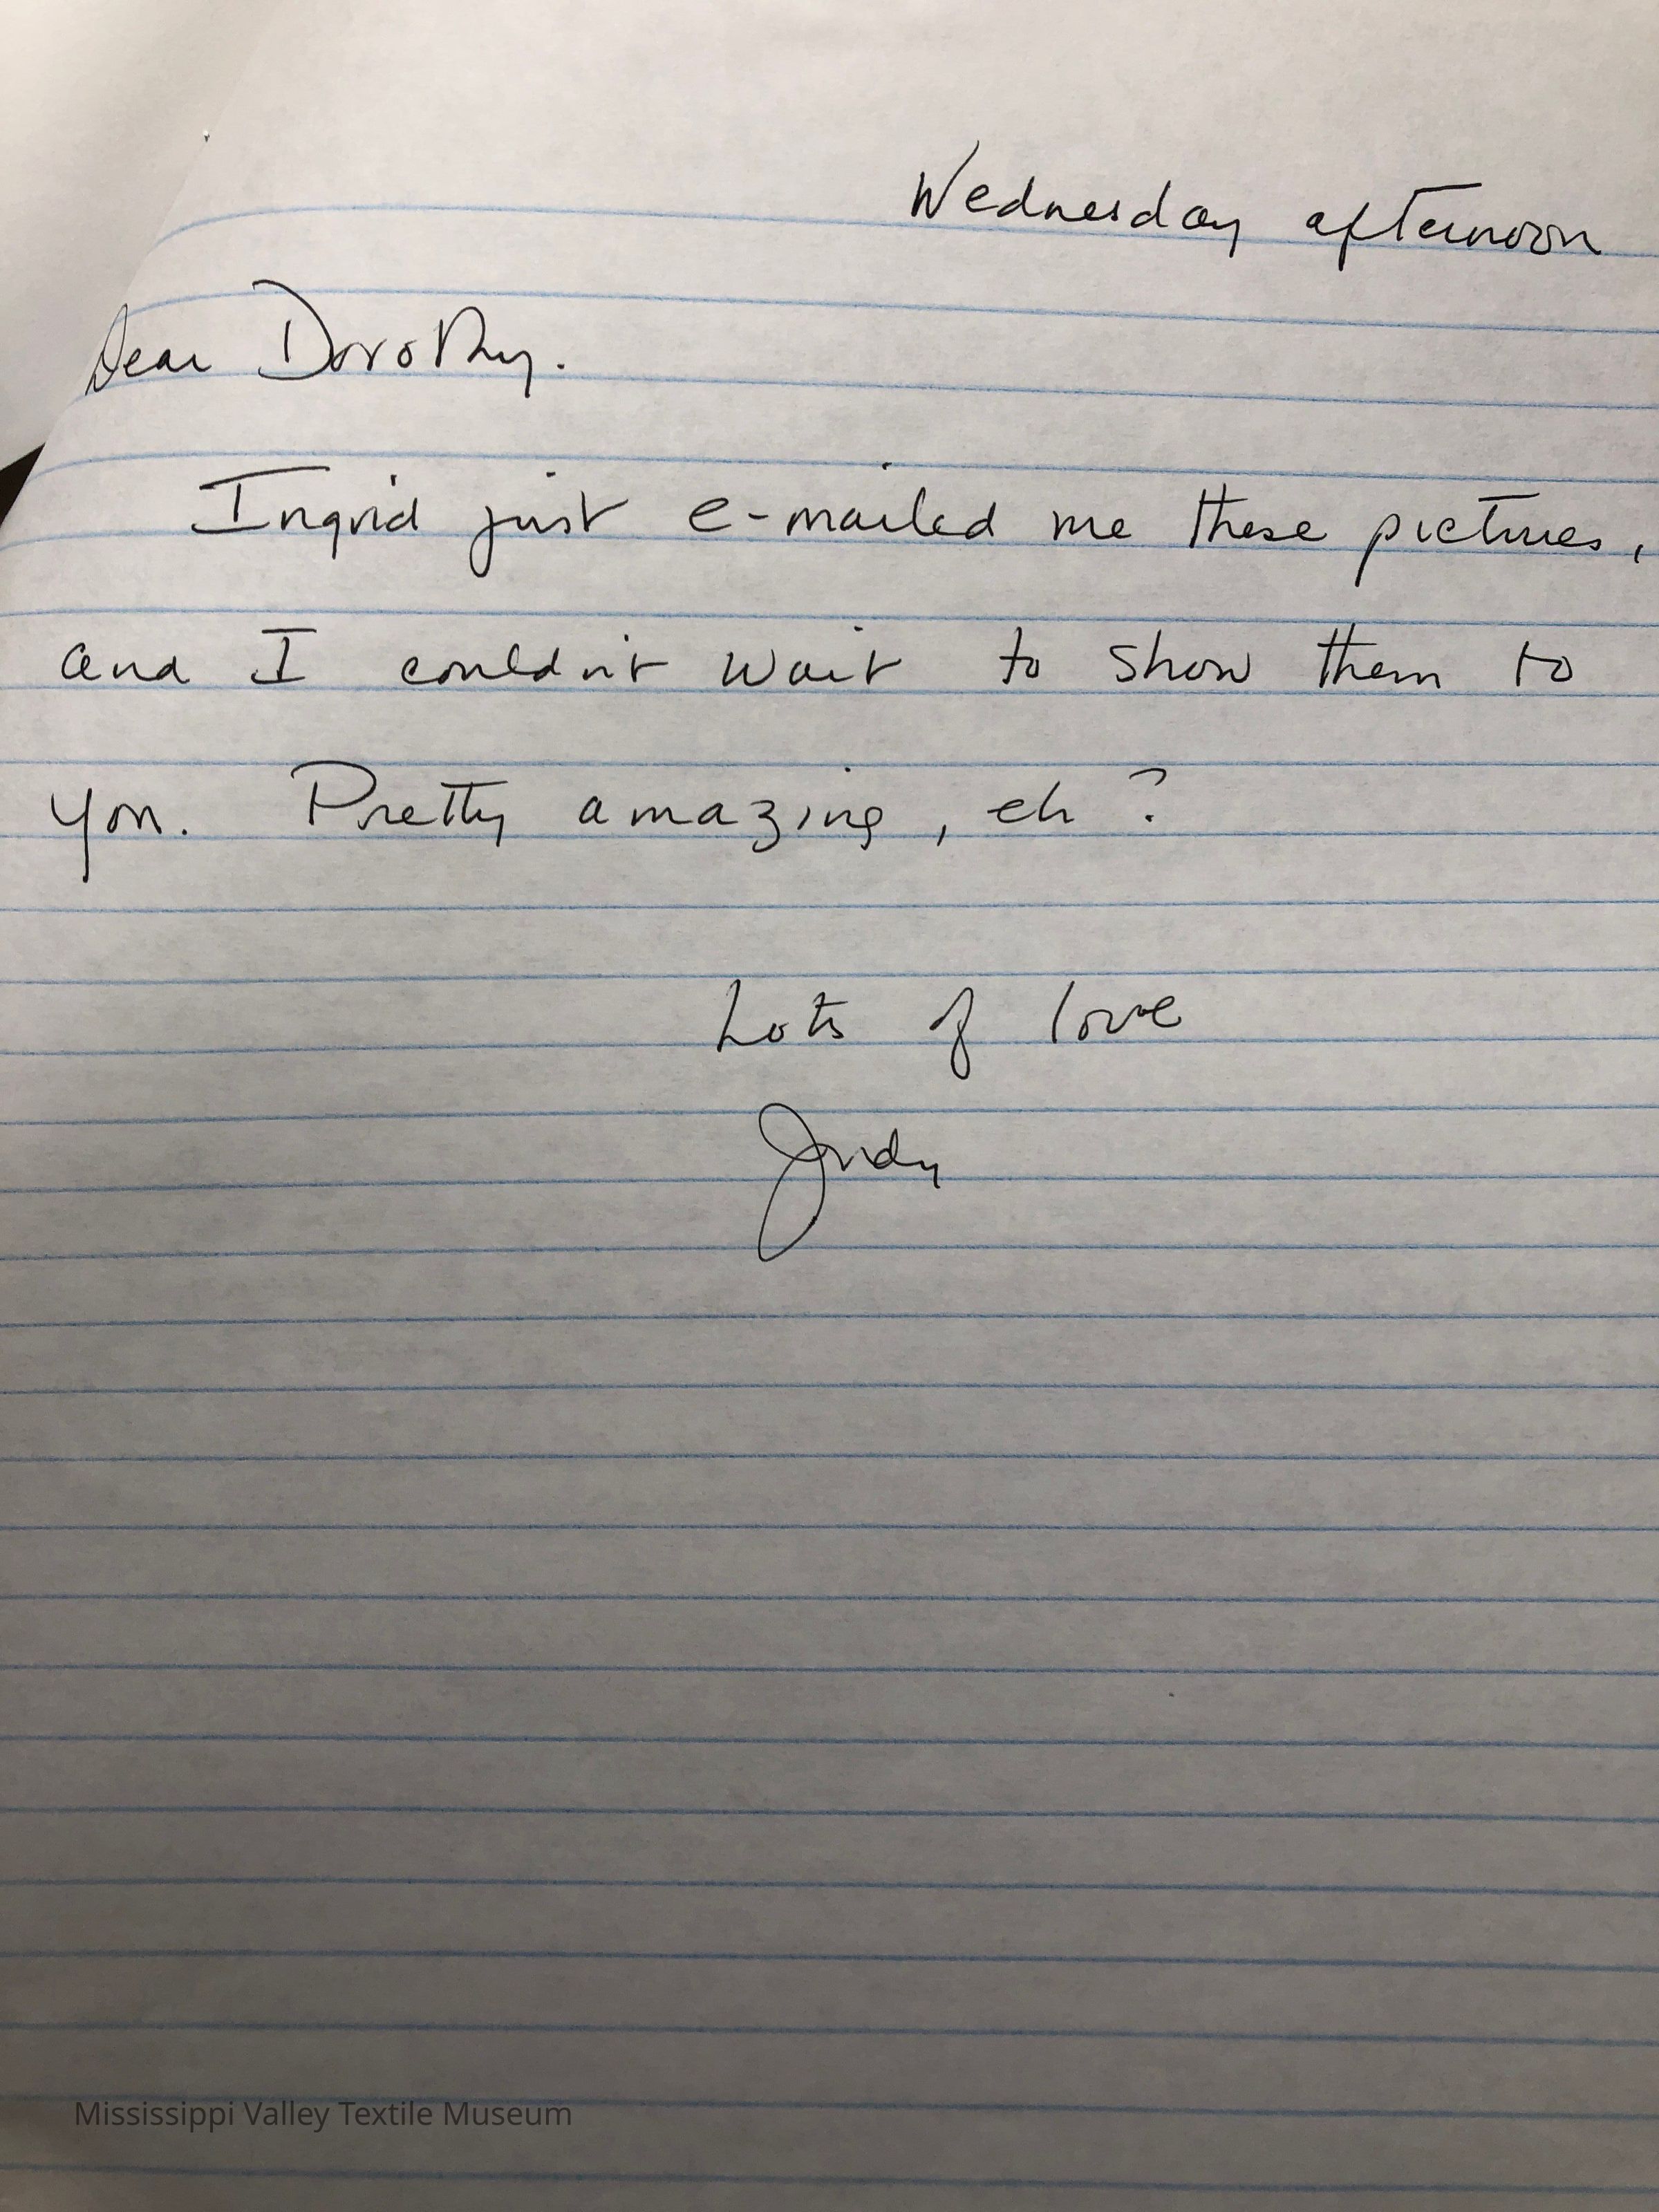 Wednesday afternoon
Dear Dorothy.
Ingrid just e-mailed me these pictures,
and I couldn't wait to show them to
you. Pretty amazing, eh?
Lots of love
Judy
Mississippi Valley Textile Museum